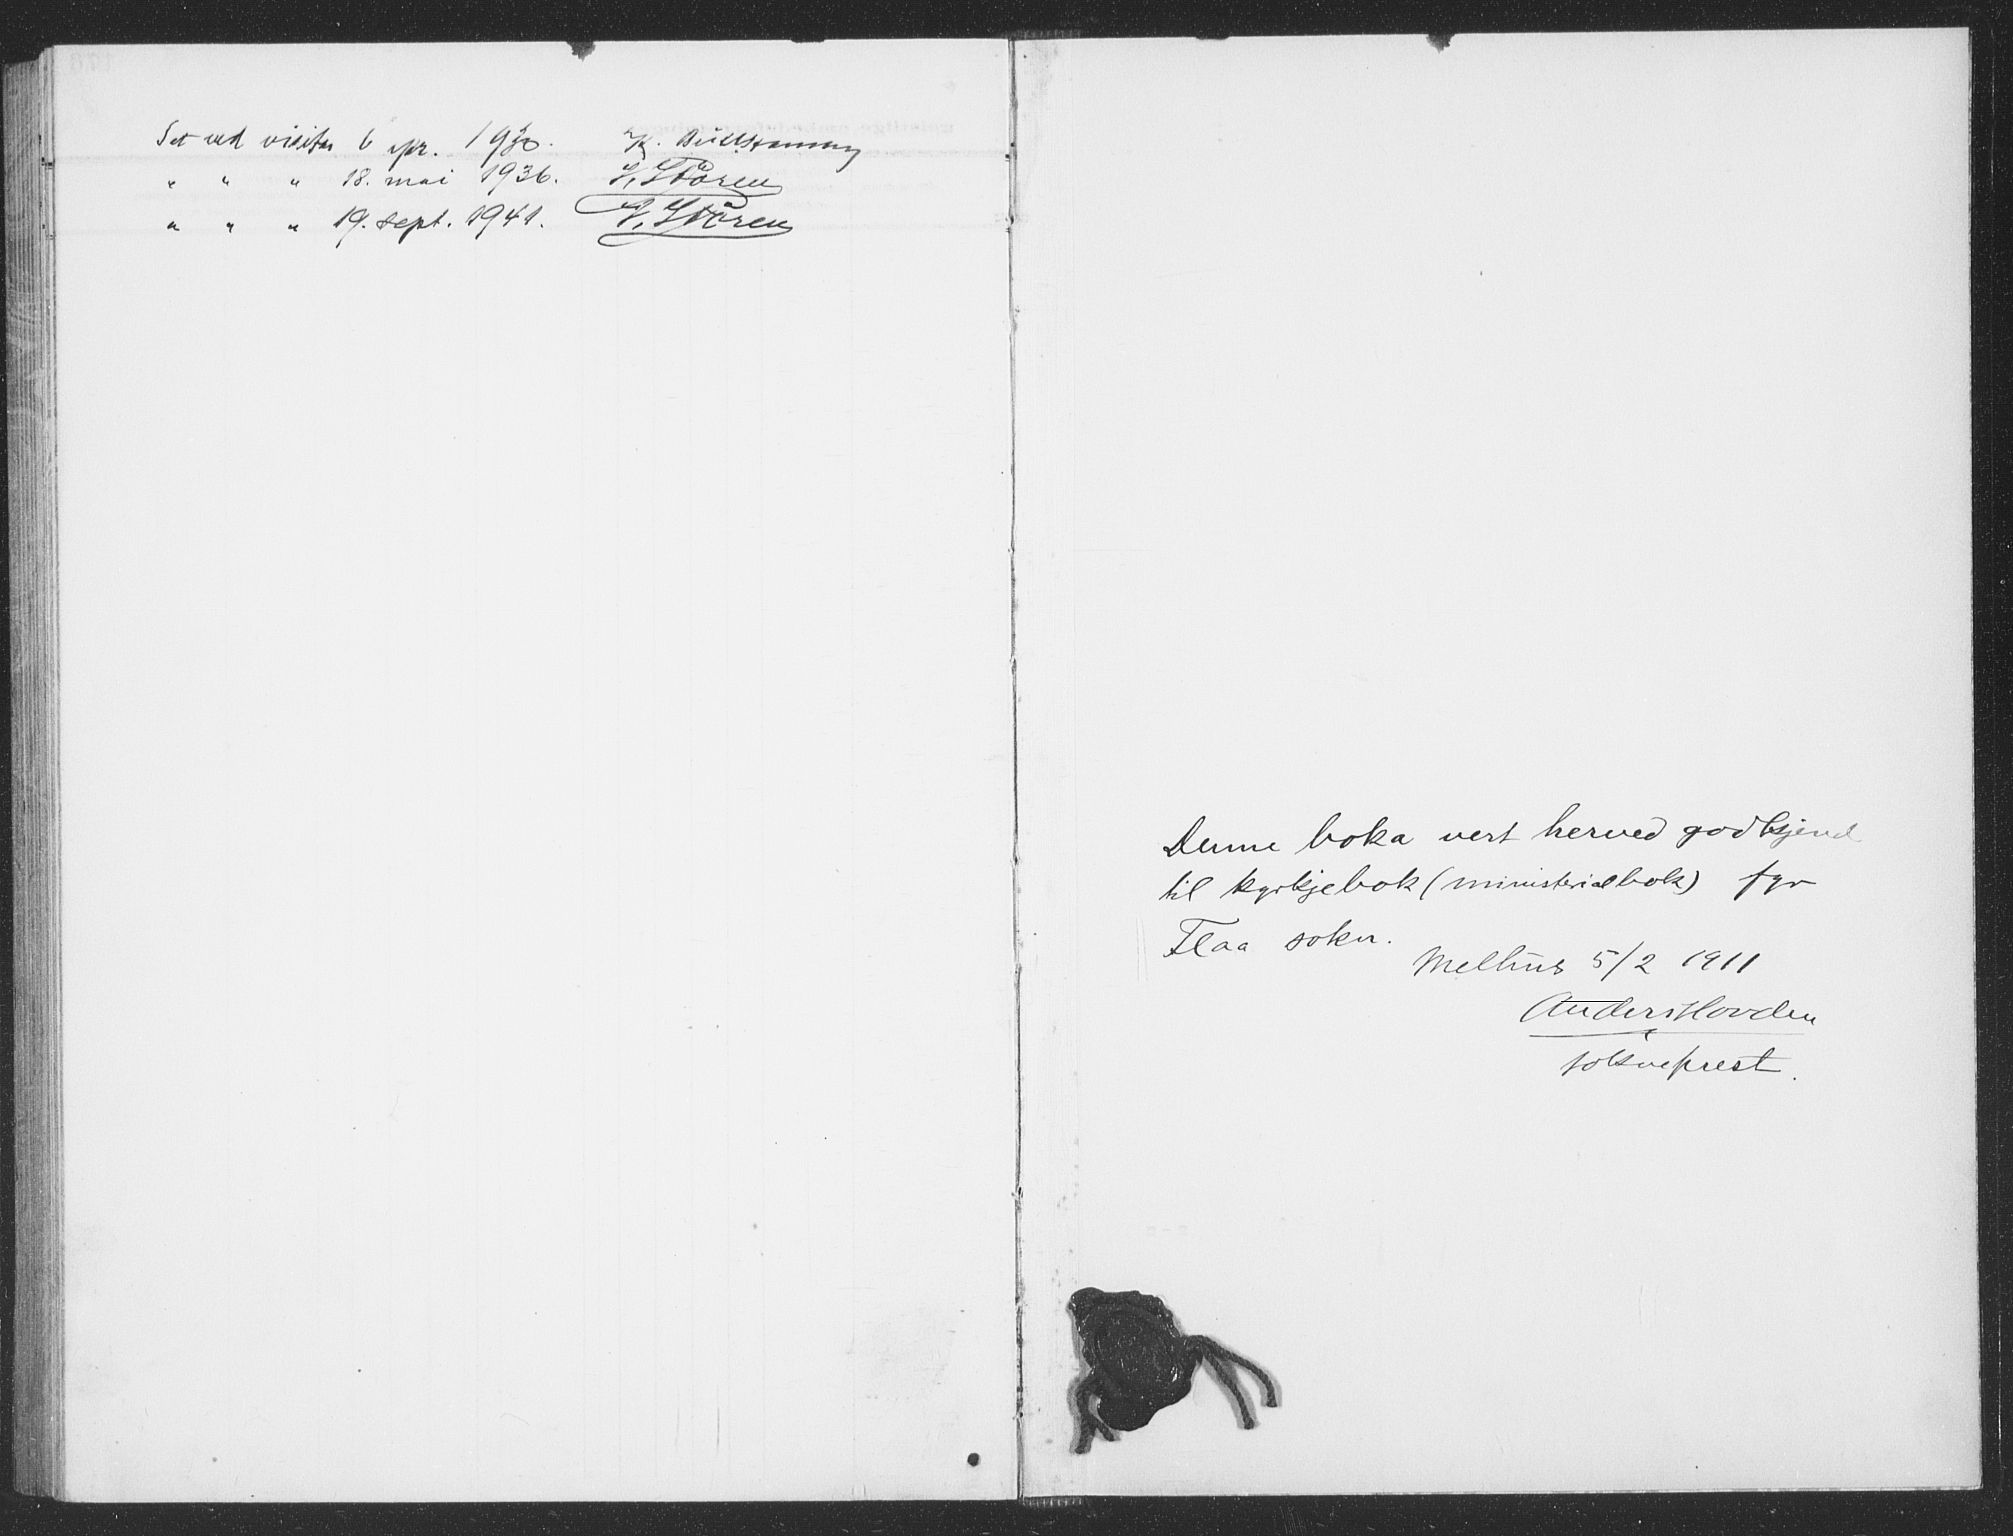 Set ved visitas 6 apr. 1930.
" " " 18. mai 1936. Stören
" " " 19. sept. 1941. Stören
Denne boka vert herved godkjend
til kyrkjebok (ministerialbok) fyr
Flaa sokn.
Melhus 5/2 1911
Anders Hovden
sokneprest.